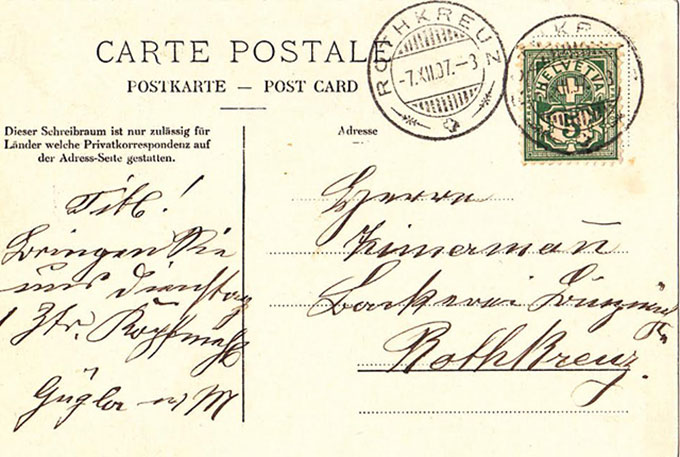 CARTE POSTALE
POSTKARTE — POST CARD
ROTHKREUZ
-7.XII.07.-3
HELVETIA
5
Dieser Schreibraum ist nur zulässig für
Länder welche Privatkorrespondenz auf
der Adress-Seite gestatten.
Adresse
Titl.!
Bringen Sie
uns Dienstag
1 Ztr.
Herrn
Zimerman̄
Rothkreuz.